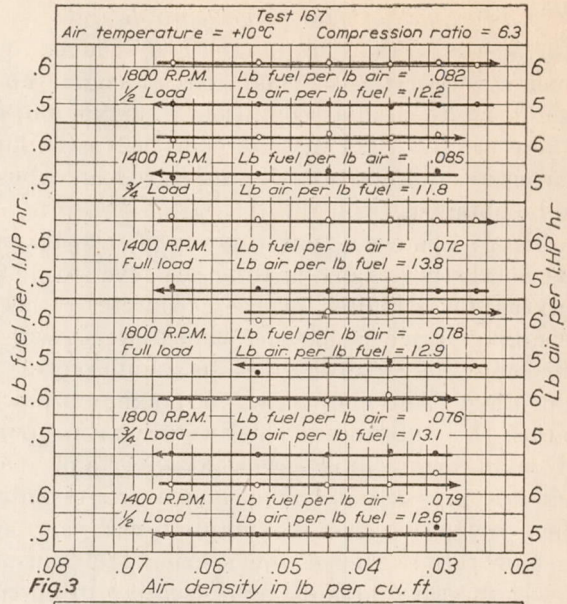 Test 167
Air temperature = +10°C Compression ratio = 6.3
.6 6
1800 R.P.M. Lb fuel per lb air = .082
½ Load Lb air per lb fuel = 12.2
.5 5
.6 6
1400 R.P.M. Lb fuel per lb air = .085
.5 5
¾ Load Lb air per lb fuel = 11.8
.6 6
1400 R.P.M. Lb fuel per lb air = .072
Full load Lb air per lb fuel = 13.8
.5 5
.6 6
1800 R.P.M. Lb fuel per lb air = .078
Full load Lb air per lb fuel = 12.9
.5 5
.6 6
1800 R.P.M. Lb fuel per lb air = .076
¾ Load Lb air per lb fuel = 13.1
.5 5
.6 6
1400 R.P.M. Lb fuel per lb air = .079
½ Load Lb air per lb fuel = 12.6
.5 5
Lb fuel per I.HP hr.
Lb air per I.HP hr
.08 .07 .06 .05 .04 .03 .02
Fig.3 Air density in lb per cu. ft.